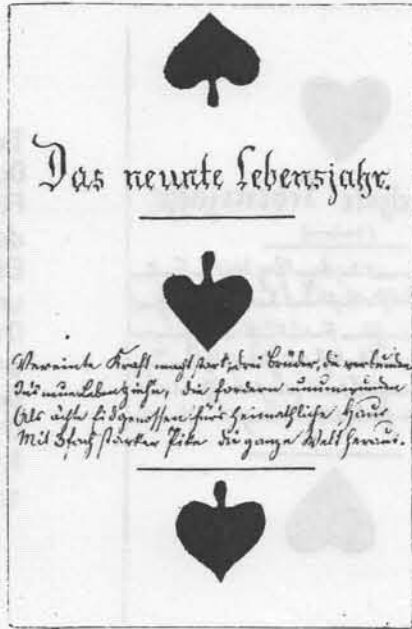 Das neunte Lebensjahr.
Vereinte Kraft macht stark; drei Brüder, die verbunden
Ins neue Leben ziehn, die fordern unumwunden
Als ächte Eidgenossen für's heimathliche Haus
Mit 3fach starker Pike die ganze Welt heraus.